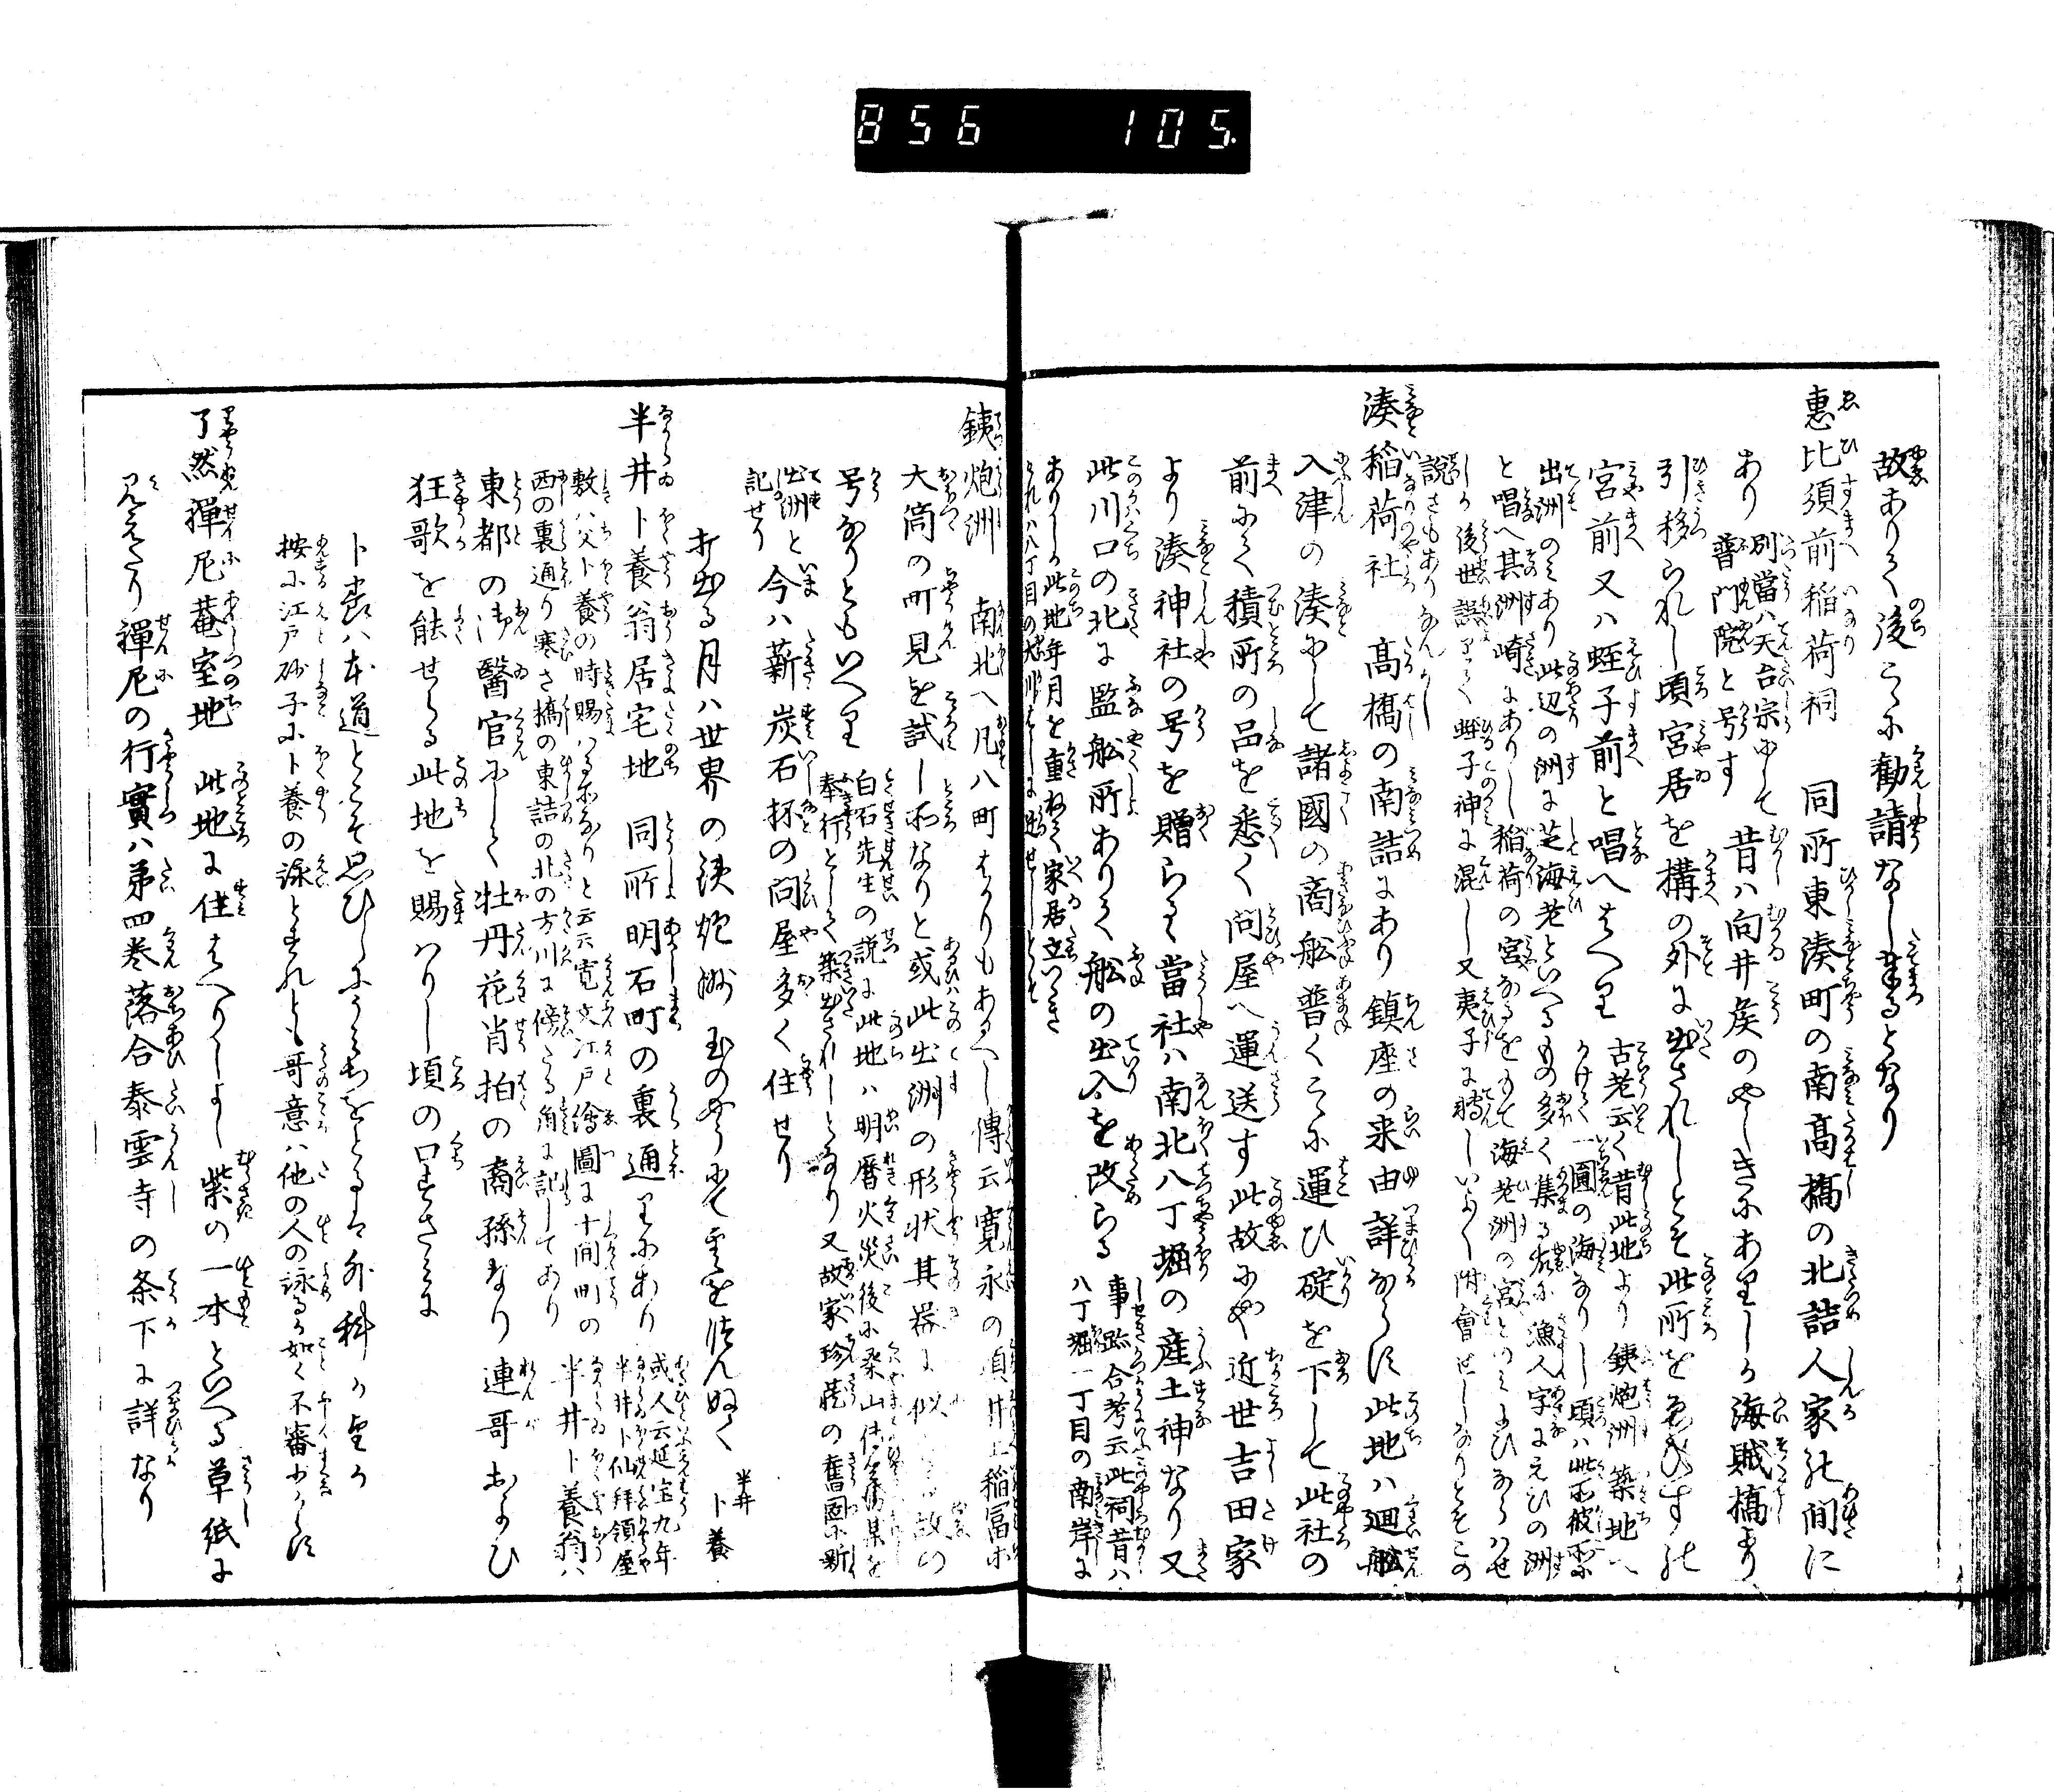 856 105.
故ありて後こゝに勧請なし奉るとなり
惠比須前稲荷祠 同所東湊町の南髙橋の北詰人家の間に
あり 別當ハ天台宗にして普門院と号す 昔ハ向井矦のやしきにありしか海賊橋より
引移られし頃宮居を構の外に出されしとそ此所をゑひすの
宮前又ハ蛭子前と唱へはへり 古老云く昔此地より鉄炮洲築地へ
かけて一圓の海なりし頃ハ此所彼所に
出洲のミあり此辺の洲に芝海老といへるもの多く集る故に漁人字にえひの洲
と唱へ其洲崎にありし稲荷の宮なるをもて海老洲の宮とのミよひならハせ
しか後世誤りて蛭子神に混し又夷子に轉しいよ〱附會せしなりとそこの
説さもありなんかし
湊稲荷社 髙橋の南詰にあり鎮座の来由詳ならす此地ハ廻舩
入津の湊にして諸國の商舩普くこゝに運ひ碇を下して此社の
前にて積所の品を悉く問屋へ運送す此故にや近世吉田家
より湊神社の号を贈らる當社ハ南北八丁堀の産土神なり又
此川口の北に監舩所ありて舩の出入を改らる 事跡合考云此祠昔ハ
八丁堀一丁目の南岸に
ありしか此地年月を重ねて家居立つゝき
それハ八丁目の大川はしに迯せしとそ
銕炮洲 南北へ凡八町はかりもあるへし傳云寛永の頃井上稲冨ホ
大筒の町見を試し所なりと或此出洲の形状其器に似たる故の
号なりともいへり 白石先生の説に此地ハ明暦火災後に桑山伝兵衛某を
奉行として築出されしとなり又故家珍蔵の舊圖に新
出洲と 今ハ薪炭石抔の問屋多く住せり
記せり
打出る月ハ世界の鉄炮洲玉のやうにて雲をつんぬく 半井卜養
半井卜養翁居宅地 同所明石町の裏通りにあり 或人云延宝九年
半井卜仙拝領屋
敷ハ父卜養の時賜ハる所なりと云云寛文江戸繪圖に十間町の
西の裏通り寒さ橋の東詰の北の方川に傍たる角に記してあり 半井卜養翁ハ
東都の御醫官にして牡丹花肖柏の裔孫なり連哥およひ
狂歌を能せらる此地を賜ハりし頃の口すさみに
卜養ハ本道とこそ思ひしにうみちをとるは外科か望か
按に江戸砂子に卜養の詠とすれとも哥意ハ他の人の詠るか如く不審少からす
了然禪尼菴室地 此地に住はへりしよし紫の一本といへる草紙に
見えたり禪尼の行實ハ第四巻落合泰雲寺の条下に詳なり